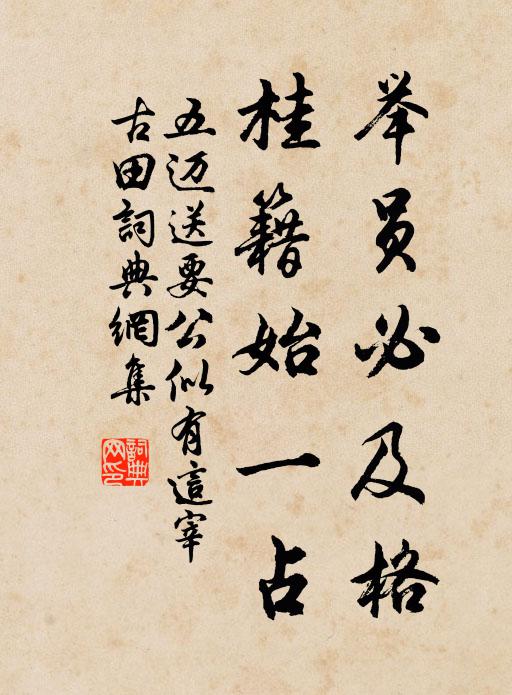 举员必及格
桂籍始一占
五迈送要公似有這宰
古田詞典網集
詞典網印